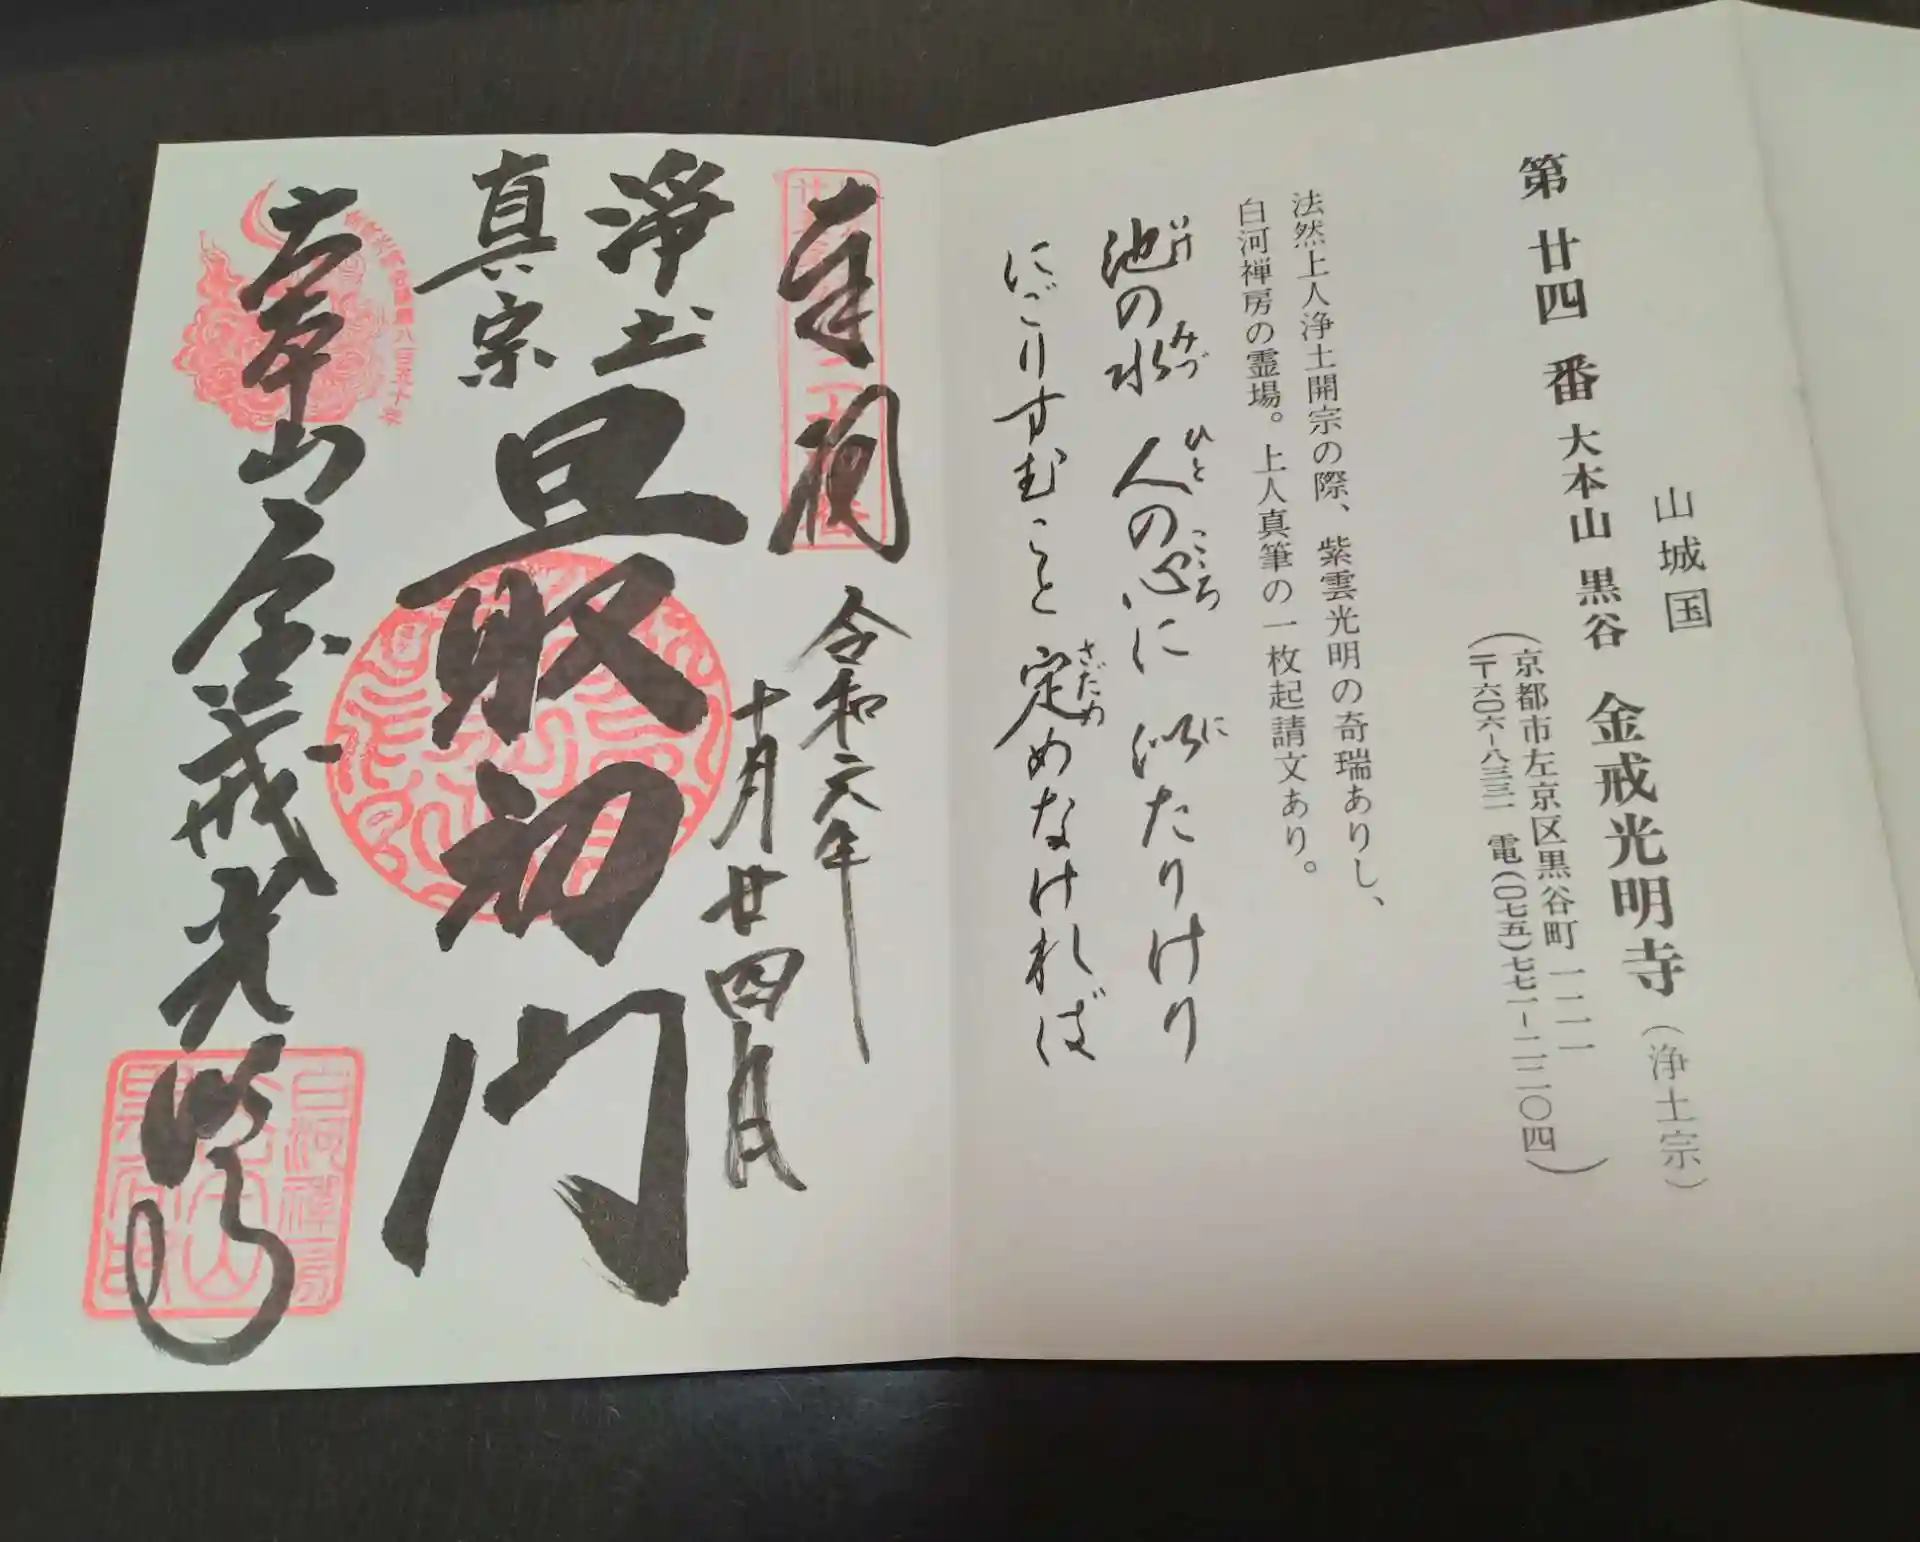 山城国
第廿四番 大本山 黒谷 金戒光明寺（浄土宗）
（京都市左京区黒谷町一二一
〒六〇六-八三三一 電(〇七五)七七一-二二〇四）
法然上人浄土開宗の際、紫雲光明の奇瑞ありし、
白河禅房の霊場。上人真筆の一枚起請文あり。
池の水 人の心に 似たりけり
いけ みづ ひと こころ に
にごりすむこと 定めなければ
さだめ
奉拝
令和六年
十月廿四日
浄土
真宗
最初門
大本山金戒光明寺
白河禅房